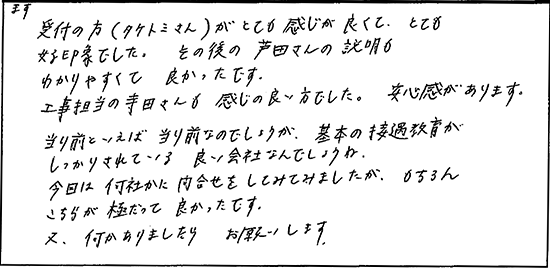 ます
受付の方(タケトミさん)がとても感じが良くて、とても
好印象でした。 その後の芦田さんの説明も
わかりやすくて 良かったです。
工事担当の寺田さんも 感じの良い方でした。 安心感があります。
当り前といえば 当り前なのでしょうが、基本の接遇教育が
しっかりされている 良い会社なんでしょうね、
今日は何社かに問合せをしてみてみましたが、もちろん
こちらが 極だって 良かったです。
又、何かありましたら お願いします。